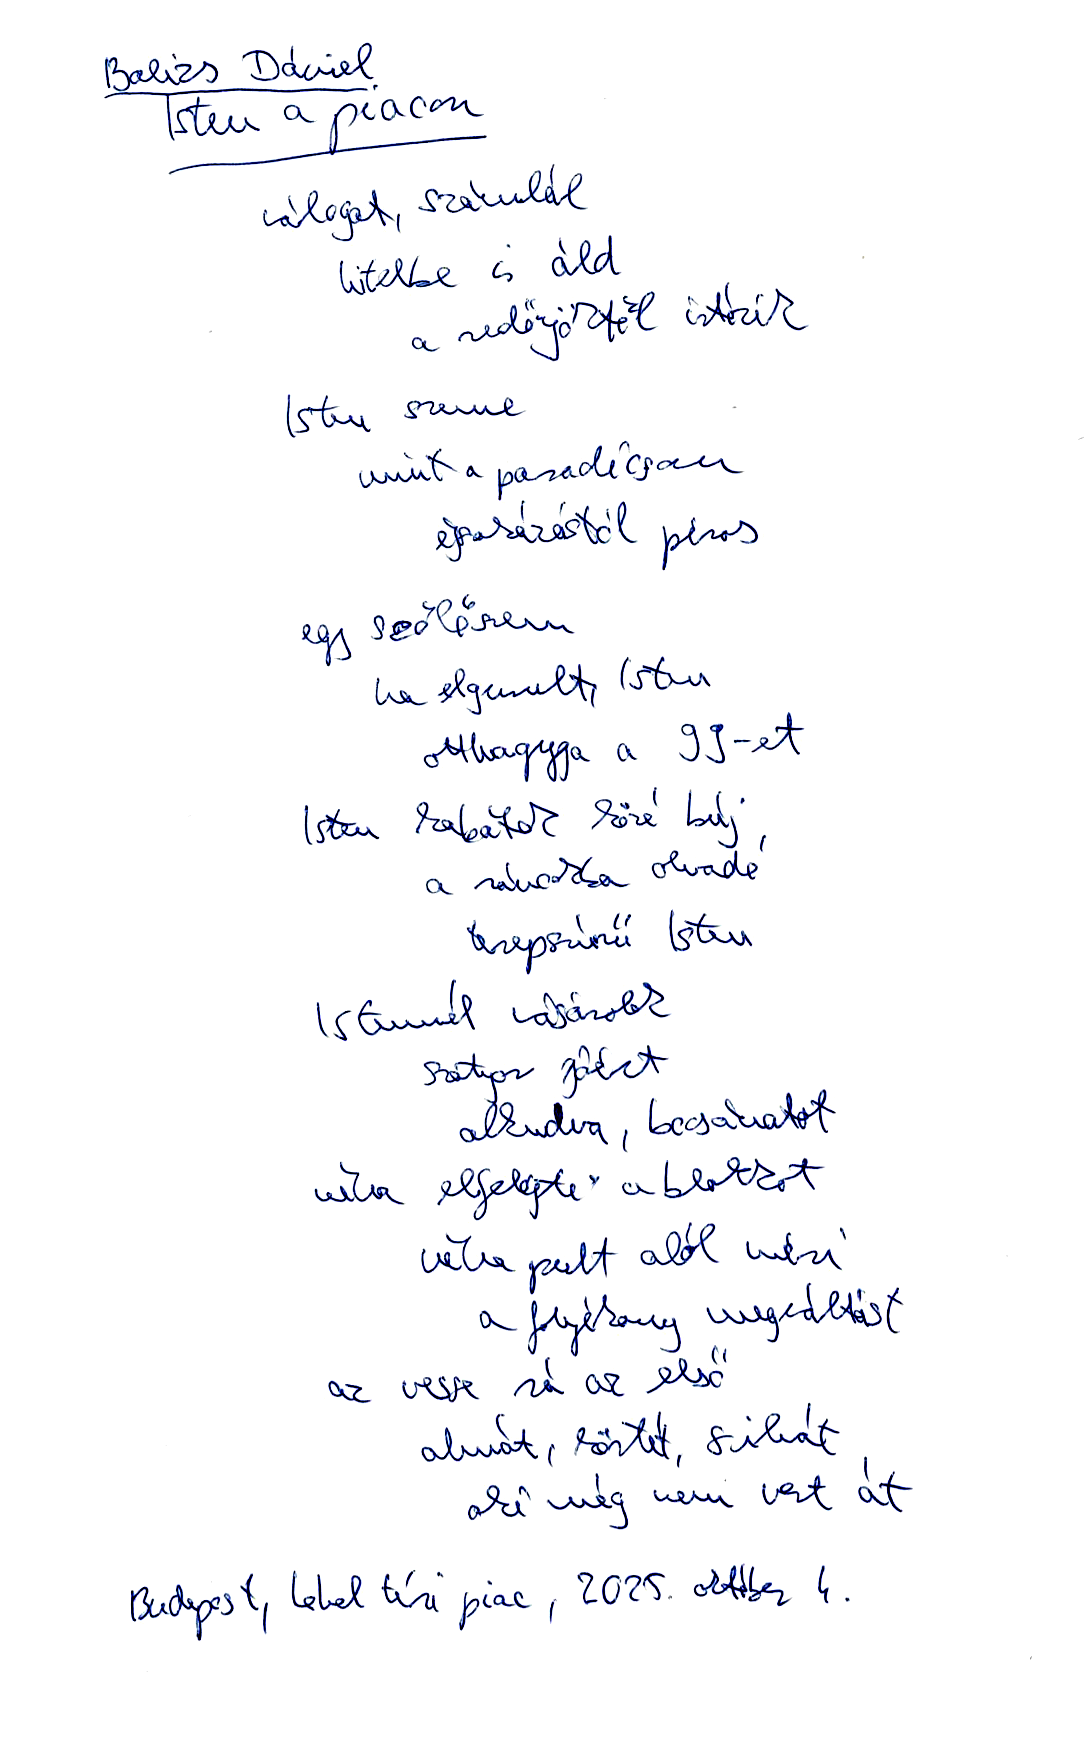 Balizs Dániel
Isten a piacon
válogat, számlál
hitelbe is áld
a redőnyöktől istózik
Isten szeme
mint a paradicsom
éjszakázástól piros
egy szőlőszem
ha elgurult, Isten
otthagyja a 99-et
Isten kabátok közé búj,
a ráncokba olvadó
terepszínű Isten
Istennél vásárolok
szatyor jóért
alkudva, bocsánatot
néha elfelejte a blokkot
néha pult alól méri
a folyékony megváltást
az vesse rá az első
almát, körtét, szilvát
akit még nem vert át
Budapest, Lehel téri piac, 2025. október 4.